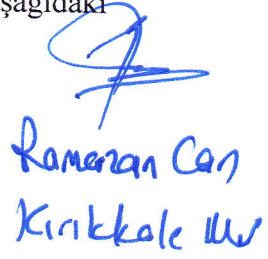 şağıdaki
Ramazan Can
Kırıkkale Mv